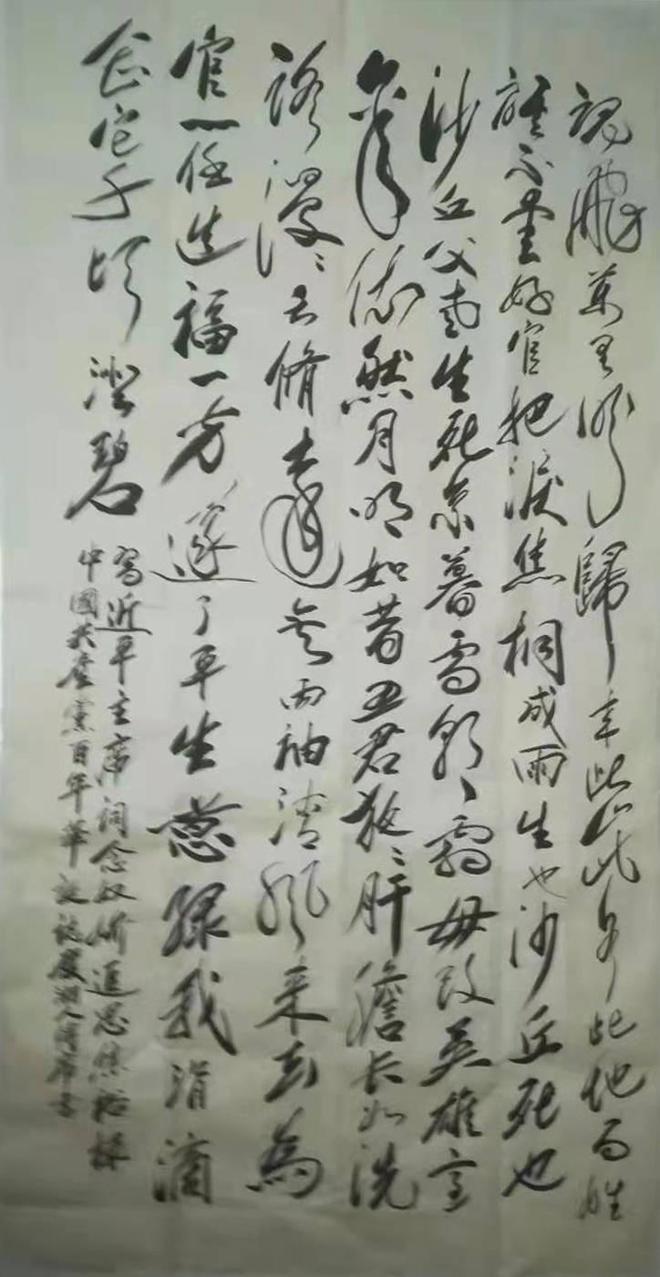 魂飛萬里盼歸來此水此山此地百姓
誰不愛好官把淚焦桐成雨生也沙丘死也
沙丘父老生死系暮雪朝霜毋改英雄意
氣依然月明如昔思君夜夜肝膽長如洗
路漫漫其修遠矣兩袖清風來去為
官一任造福一方遂了平生意綠我涓滴
會它千頃澄碧
寫近平主席詞念奴嬌追思焦裕祿
中國共產黨百年華誕